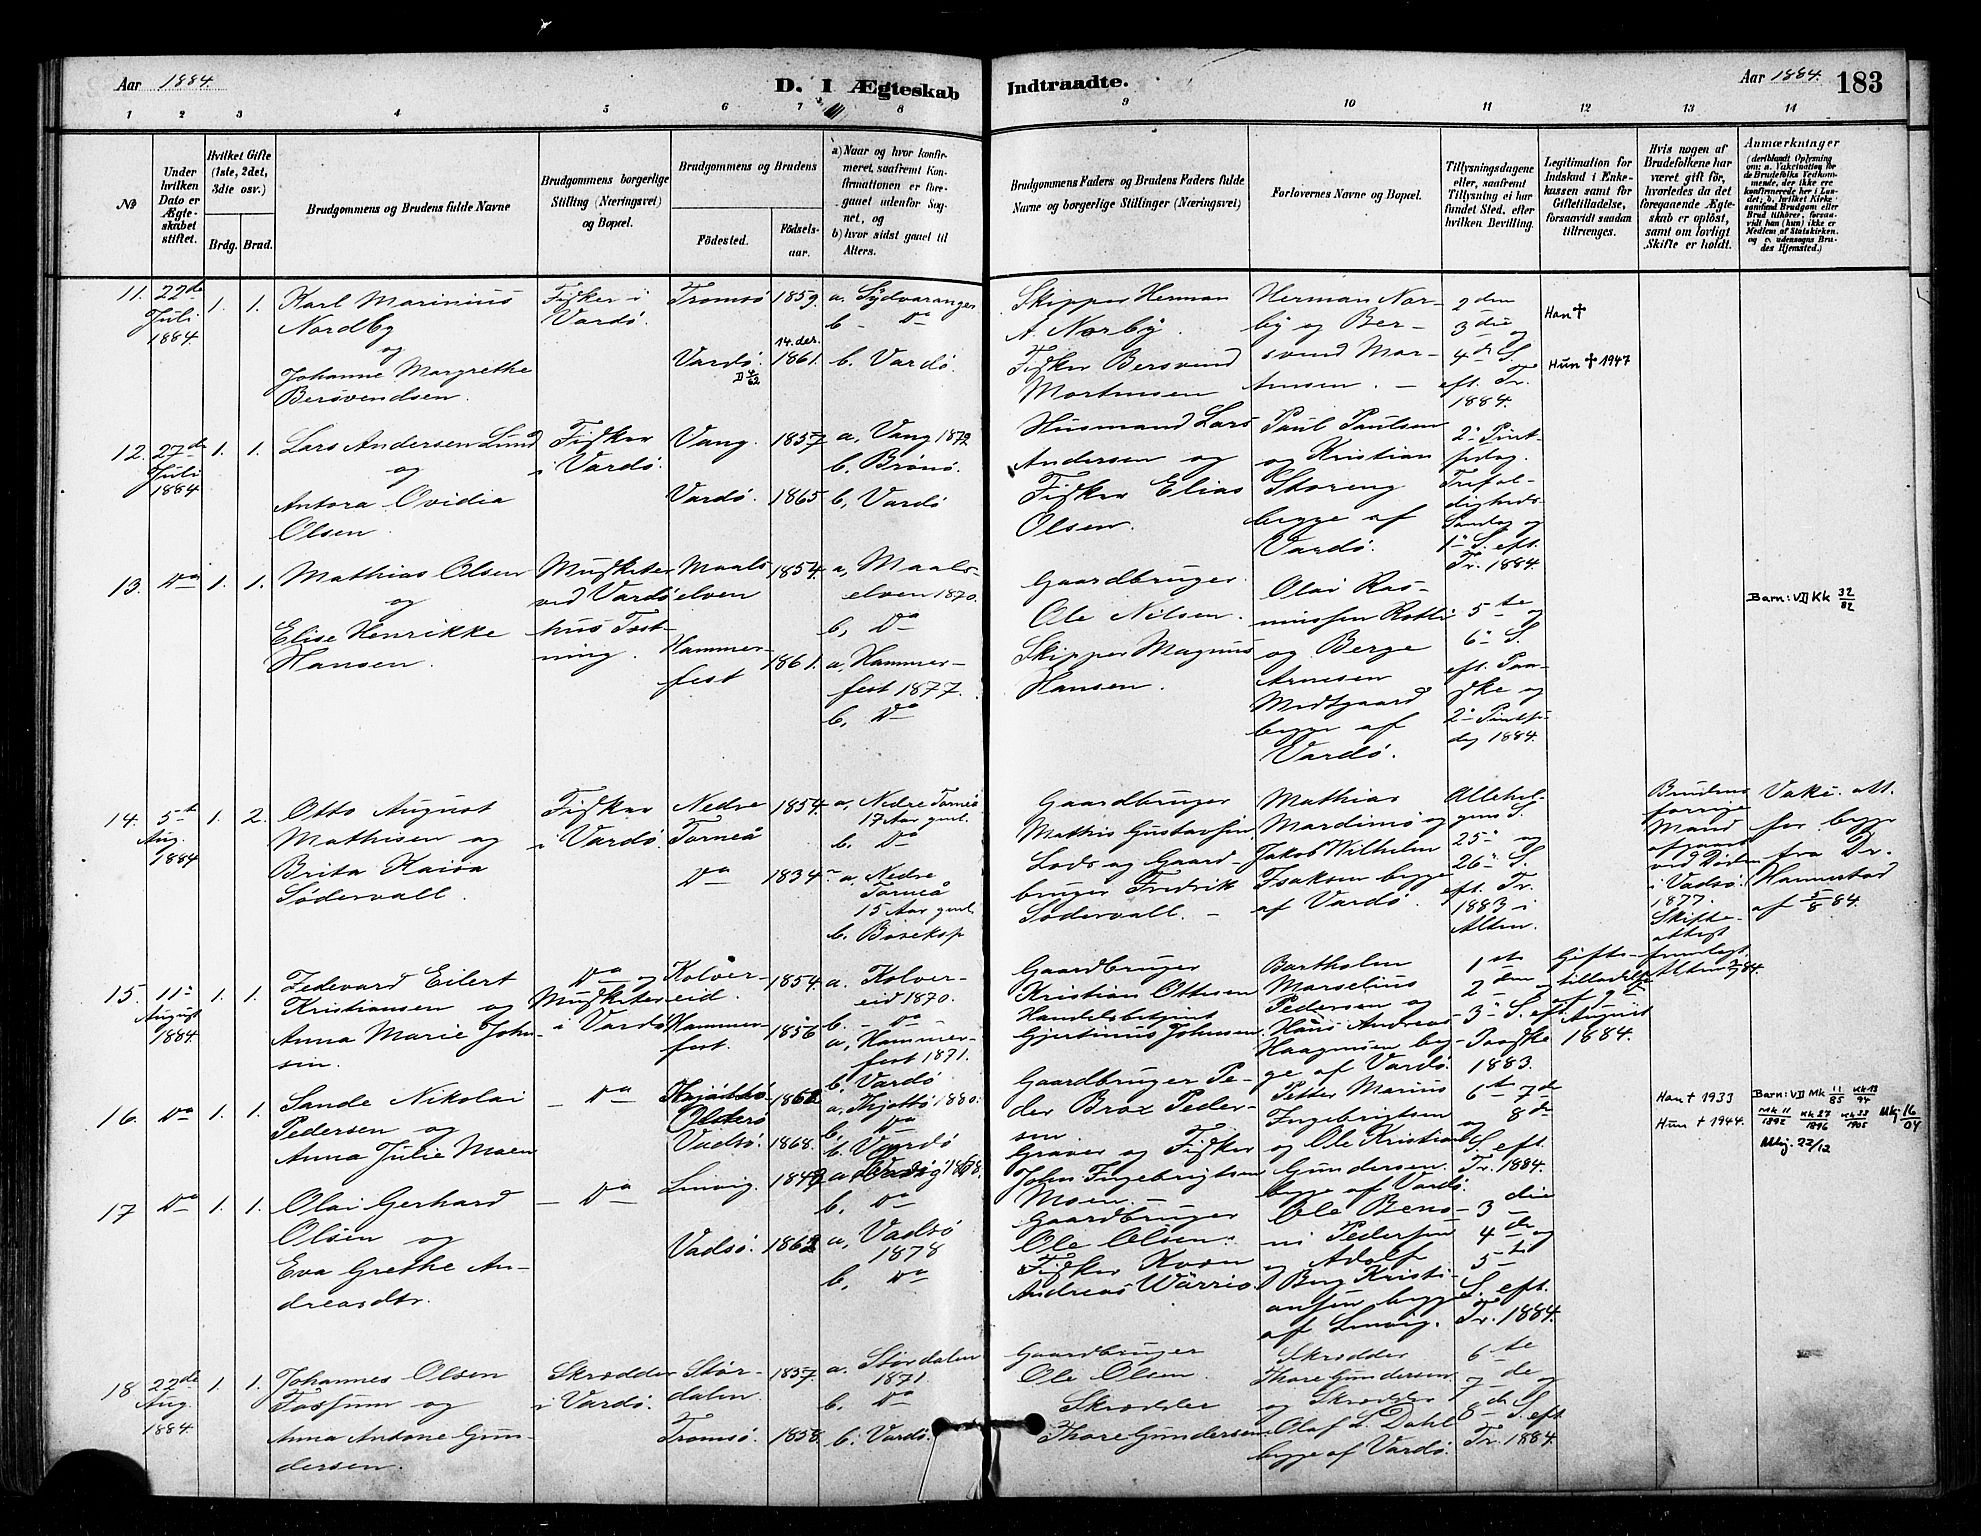 Aar 1884.
D. I Ægteskab Indtraadte.
Aar 1884. 183
1 2 3 4 5 6 7 8 9 10 11 12 13 14
No
Under hvilken Dato er Ægteskabet stiftet.
Hvilket Gifte (1ste, 2det, 3die osv.)
Brdg. Brud.
Brudgommens og Brudens fulde Navne
Brudgommens borgerlige Stilling (Næringsvei) og Bopæl.
Brudgommens og Brudens
Fødested.
Fødselsaar.
a) Naar og hvor konfirmeret, saafremt Konfirmationen er foregaaet udenfor Sognet, og
b) hvor sidst gaaet til Alters.
Brudgommens Faders og Brudens Faders fulde Navne og borgerlige Stillinger (Næringsvei)
Forlovernes Navne og Bopæl.
Tillysningsdagene eller, saafremt Tillysning ei har fundet Sted, efter hvilken Bevilling.
Legitimation for Indskud i Enkekassen samt for Giftetilladelse, forsaavidt saadan tiltrænges.
Hvis nogen af Brudefolkene har været gift før, hvorledes da det foregaaende Ægteskab er opløst, samt om lovligt Skifte er holdt.
Anmærkninger
(deriblandt Oplysning om: a. Vaccination for de Brudefolks Vedkommende, der ikke ere konfirmerede her i Landet; b. hvilket Kirkesamfund Brudgom eller Brud tilhører, forsaavidt han (hun) ikke er Medlem af Statskirken, og c. udensogns Brudes Hjemsted.)
11. 22de Juli 1884. 1. 1.
Karl Marinius
Nordby
og
Johanne Margrethe
Bersvendsen.
Fisker i
Vardö.
Tromsö 1859.
Vardö. 14. des. 1861.
a. Sydvaranger
b - Do
b. Vardö.
Skipper Herman
A. Norby.
Fisker Bersvend
Mortensen
Herman Nor-
by og Ber-
svend Mor-
tensen. -
2den
3die og
4de S.
eft. Tr.
1884.
Han †
Hun † 1947
12. 27de Juli 1884 1. 1.
Lars Andersen Lund
og
Antora Ovidia
Olsen.
Fisker
i Vardö.
Vang. 1857
Vardö. 1865
a, Vang 1872
b. Brönö.
b, Vardö
Husmand Lars
Andersen og
Fisker Elias
Olsen.
Paul Paulsen
og Kristian
Storeng
begge af
Vardö.
2. Pint-
sedag.
Trefol-
digheds
Søndag og
1ste S. eft.
Tr. 1884.
13. Do 1. 1.
Mathias Olsen
og
Elise Henrikke
Hansen.
Musketer
ved Vardö
hus Fæst-
ning.
Maals
elven 1854.
Hammer-
fest 1861.
a, Maals-
elven 1870.
b, Do
a, Hammer-
fest 1877.
b, Do
Gaardbruger
Ole Nilsen.
Skipper Magnus
Hansen.
Olai Ras-
mussen
og Berge
Arnesen
Midtgaard
begge af
Vardö.
5te og
6te S.
eft. Paa-
ske og
2. Pintse-
dag 1884.
Barn: VII Kk 32/82
14. 5te Aug. 1884 1. 2.
Otto August
Mathisen og
Brita Kaisa
Södervall.
Fisker
i Vardö
Nedre
Torneå 1854.
Do 1834
a, Nedre Torneå
17 Aar gml.
b. Do
a, Nedre
Torneå
15 Aar gml.
b. Bosekop
Gaardbruger
Mathis Gustavsen
Lods og Gaard-
bruger Fredrik
Södervall. -
Mathias
Mardimö og
Jakob Wilhelm
Isaksen begge
af Vardö.
Allehel-
gens S.
25. og
26. S.
eft. Tr.
1883 i
Alten.
Brudens
forrige
Mand
afgaaet
ved Døden
i Vadsö
1877.
Skifte-
attest
fremlagt.
Vakc. att.
for begge
fra Dr.
Hannestad
af 5/8 84.
15. 11te August 1884. 1. 1.
Fedevard Eilert
Kristiansen og
Anna Marie John-
sen.
Do og
Musketer
i Vardö
Kolver-
eid. 1854
Hammer-
fest. 1856
a. Kolver-
eid 1870.
b. - Do
a, Hammer-
fest 1871.
b, Vardö
Gaardbruger
Kristian Ottesen
Handelsbetjent
Gjertinius Johnsen.
Bartholm
Marselius
Pedersen og
Hans Andreas
Haagensen beg-
ge af Vardö.
1ste
2den og
3. S. eft.
Paaske
1883.
Gifte-
tilladelse
af 9de
August
1884.
16. Do 1. 1.
Sande Nikolai
Pedersen og
Anna Julie Moen
- Do
1862
Vadsö. 1868.
a, Thjöttö 1880.
b. Do
b. Vardö
Gaardbruger Pe-
der Brox Peder-
sen.
Graver og Fisker
John Ingebrigtsen
Moen. -
Petter Marius
Ingebrigtsen
og Ole Kristian
Gundersen.
begge af Vardö.
6te 7de
og 8de
S. eft.
Tr. 1884.
Han † 1933
Hun † 1944.
Barn: VII Mk 11/85 Kk 13/94
Mk 11/1892 Kk 27/1896 Kk 33/1905 Mkj 16/04
Mkj. 22/12
17 Do 1. 1.
Olai Gerhard
Olsen og
Eva Grethe An-
dreasdtr.
- Do
Lenvig. 1842
Vadsö. 1862
b. Do
a, Vadsö
1878
b, Do
Gaardbruger
Ole Olsen.
Fisker Kvæn
Andreas Wärrio.
Ole Beno-
ni Pedersen
og Adolf
Berg Kristi-
ansen begge
af Lenvig.
3die
4de og
5te
S. eft.
Tr. 1884.
18 22de Aug. 1884 1. 1.
Johannes Olsen
Fossum og
Anna Antone Gun-
dersen.
Skrædder
i Vardö.
Stør-
dalen. 1857
Tromsö. 1858.
a. Størdalen
1871
b. Do
b. Vardö.
Gaardbruger
Ole Olsen.
Skrædder
Thore Gundersen.
Skrædder
Thore Gundersen
og Skrædder
Olaf L. Dahl
begge af Vardö.
6te
7de og
8de S. eft
Tr. 1884.